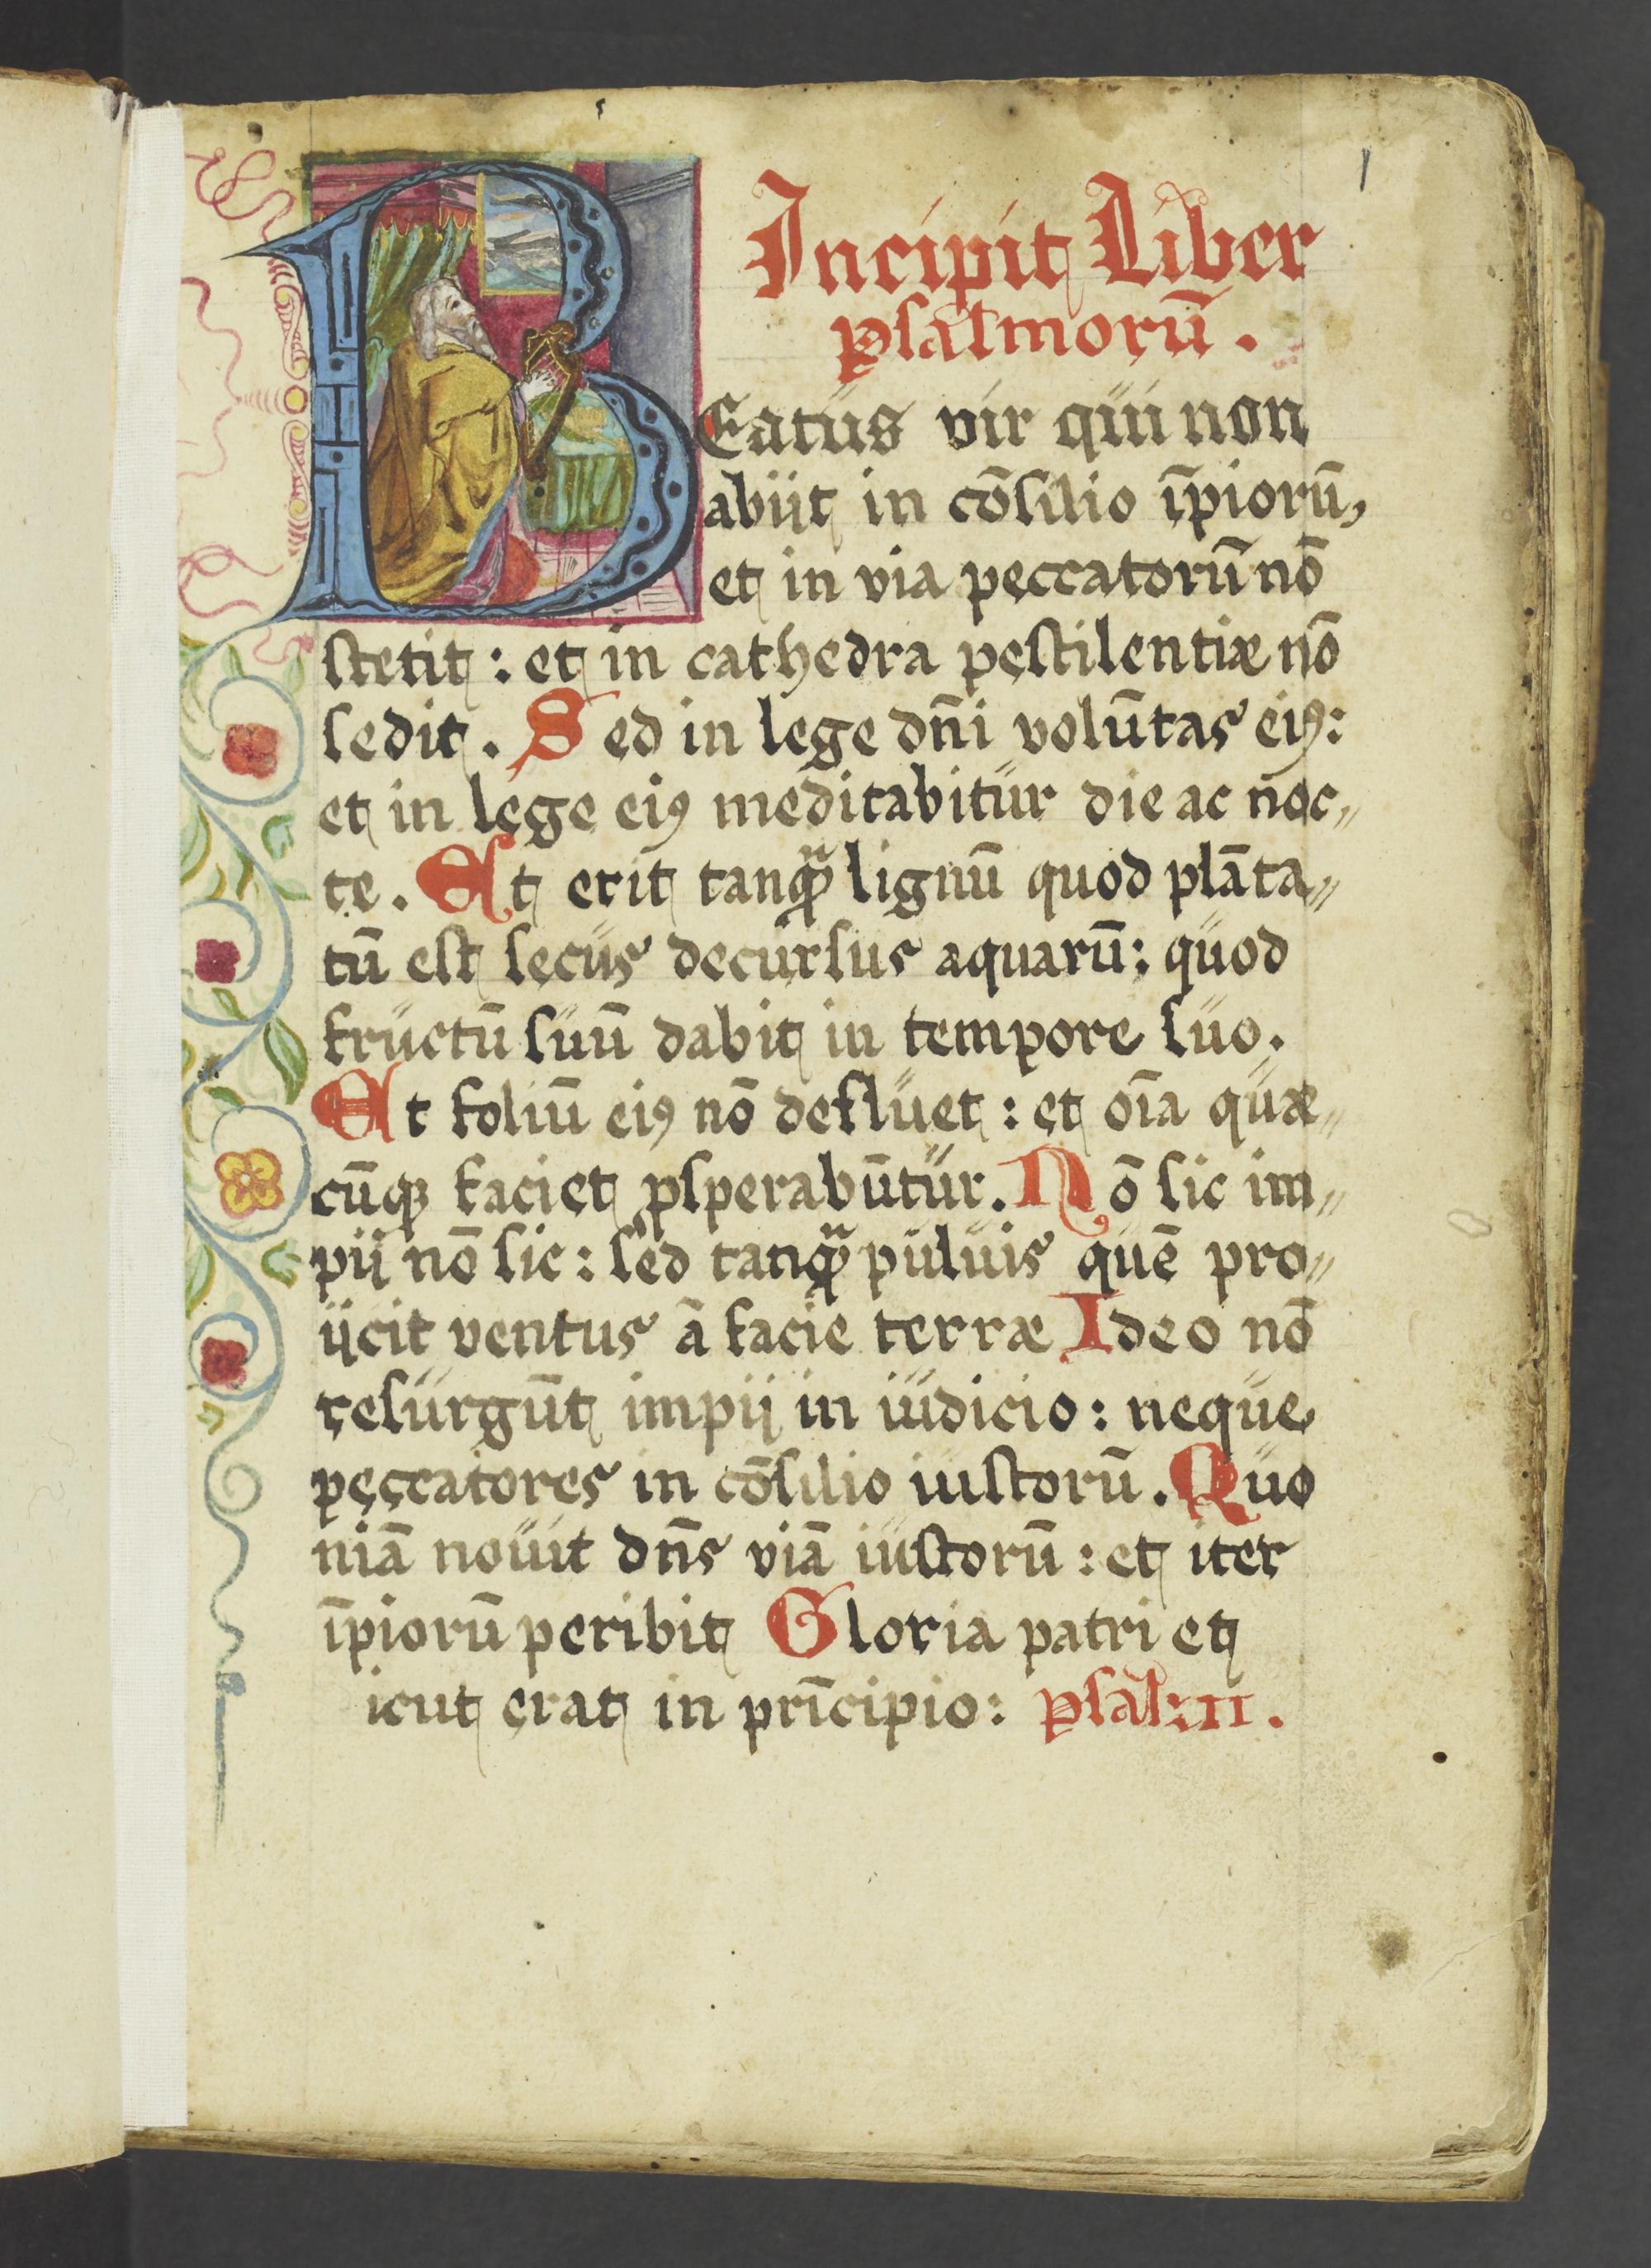 1
Incipit Liber
psalmorū.
BEatus vir qui non
abijt in cōsilio īpiorū,
et in via peccatorū nō
stetit : et in cathedra pestilentiæ nō
sedit. Sed in lege dn̄i volūtas eiꝰ:
et in lege eiꝰ meditabitur die ac noc„
te. Et erit tanꝙᷓ lignū quod plāta„
tū est secus decursus aquarū: quod
fructū suū dabit in tempore suo.
Et foliū eiꝰ nō defluet : et oīa quæ„
cūqꝫ faciet ꝓsperabūtur. Nō sic im„
pij nō sic : sed tanꝙᷓ puluis quē pro„
ijcit ventus ā facie terræ Ideo nō
resurgūt impij in iudicio : neque
peccatores in cōsilio iustorū. Quo
niā nouit dn̄s viā iustorū : et iter
īpiorū peribit Gloria patri et
icut erat in prīcipio: Psal: II.